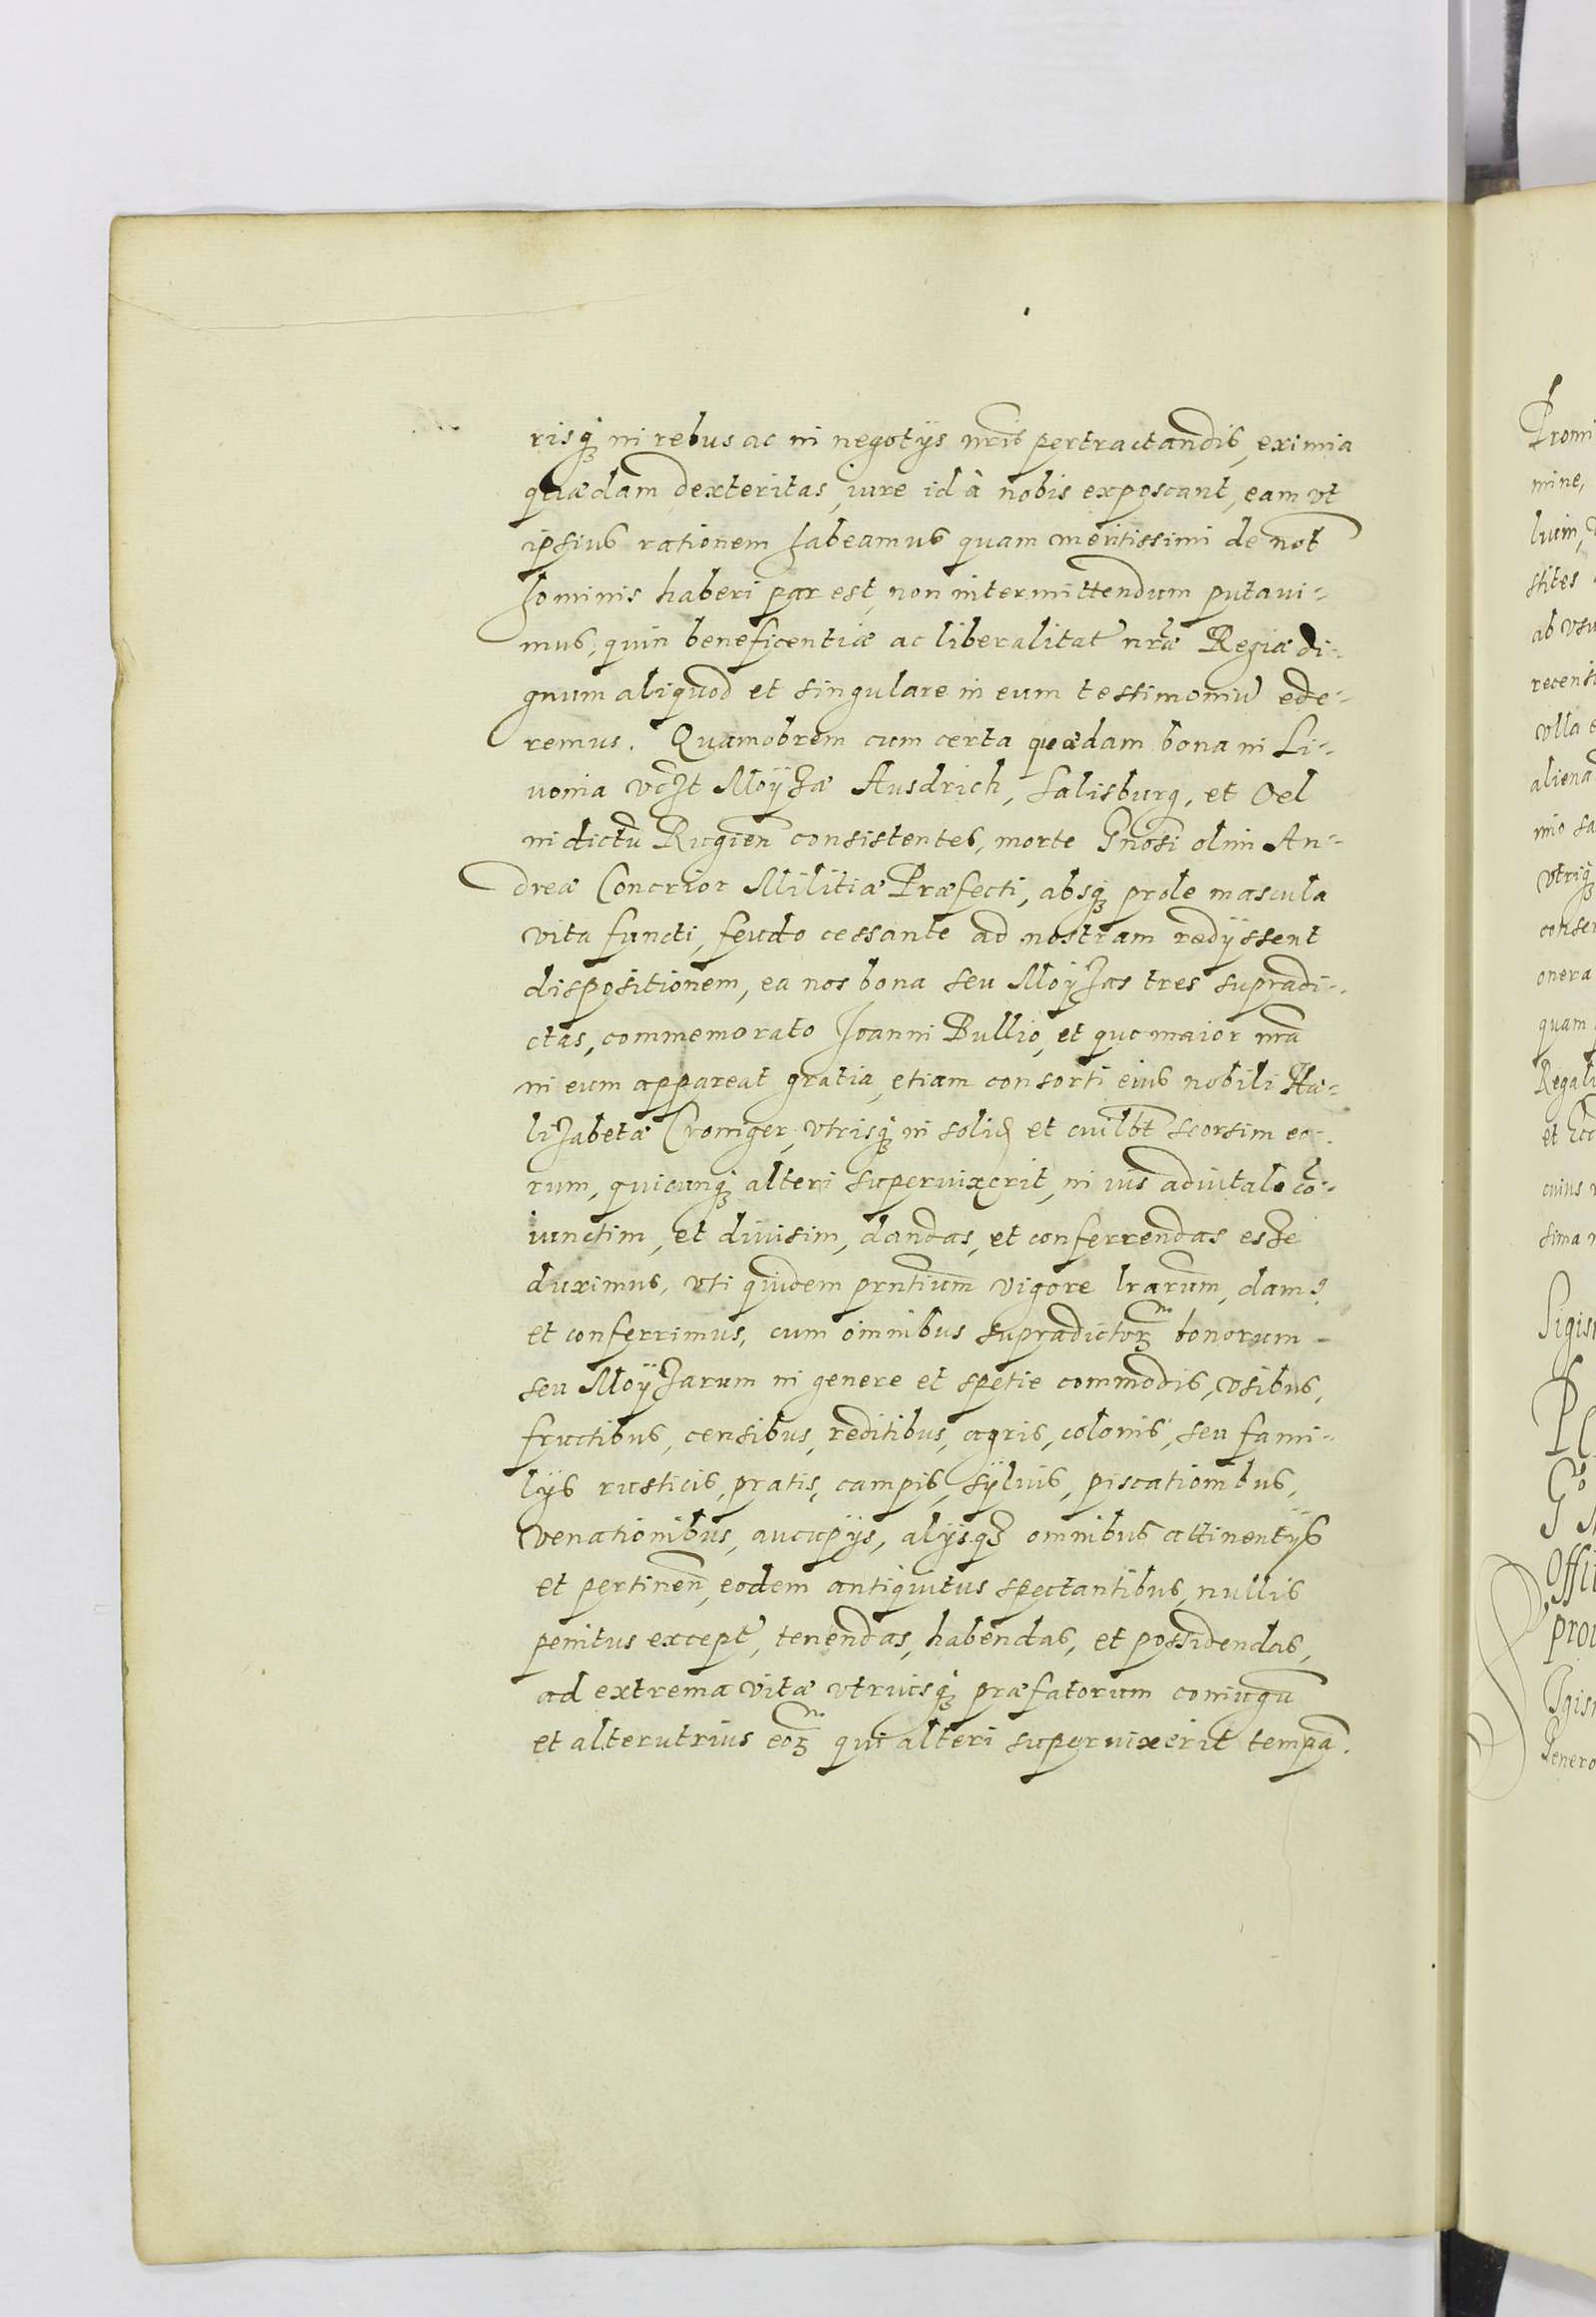 risq₃ in rebus ac in negotÿs nris pertractandis, eximia
quædam dexteritas, iure id à nobis exposcant, eam vt
ipsius rationem habeamus quam meritissimi de nob
hominis haberi par est, non intermittendum putaui-
mus, quin beneficentiæ ac liberalitat nræ Regiæ di-
gnum aliquod et singulare in eum testimoniu ede-
remus. Quamobrem cum certa quædam bona in Li-
uonia vczt Moÿzæ Ausdrich, Salisburg, et Oel
in dictu Rugien consistentes, morte Gnosi olim An-
dreæ Concrior Militiæ Præfecti, absq₃ prole mascula
vita functi, feudo cessante ad nostram redÿssent
dispositionem, ea nos bona seu Moÿzas tres supradi-
ctas, commemorato Joanni Bullio, et quo maior nra
in eum appareat gratia, etiam consorti eius nobili Ha-
lizabetæ Croniger, vtrisq₃ in solid et cuilbt seorsim eo-
rum, quicunq₃ alteri superuixerit, in ius aduitale co-
iunctim, et diuisim, dandas, et conferrendas esse
duximus, vti quidem prntium vigore lrarum, dam9
et conferrimus, cum omnibus supradictor₃ bonorum
seu Moÿzarum in genere et spetie commodis, vsibus,
fructibus, censibus, reditibus, agris, colonis, seu fami-
lÿs rusticis, pratis, campis, sÿluis, piscationibus,
venationibus, aucupÿs, alÿsq₃ omnibus attinentÿs
et pertinen, eodem antiquitus spectantibus, nullis
penitus except, tenendas, habendas, et possidendas,
ad extrema vitæ vtriusq₃ præfatorum coniugu
et alterutrius eor₃ qui alteri superuixerit tempa.
Promi
mine,
luim,
stites
ab vsu
recensi
vlla e
aliena
nio sa
vtriq₃
conser
onera
quam
Regali
et
cuius
sima
Sigis
P
G
Offi
proc
Igis
Genero